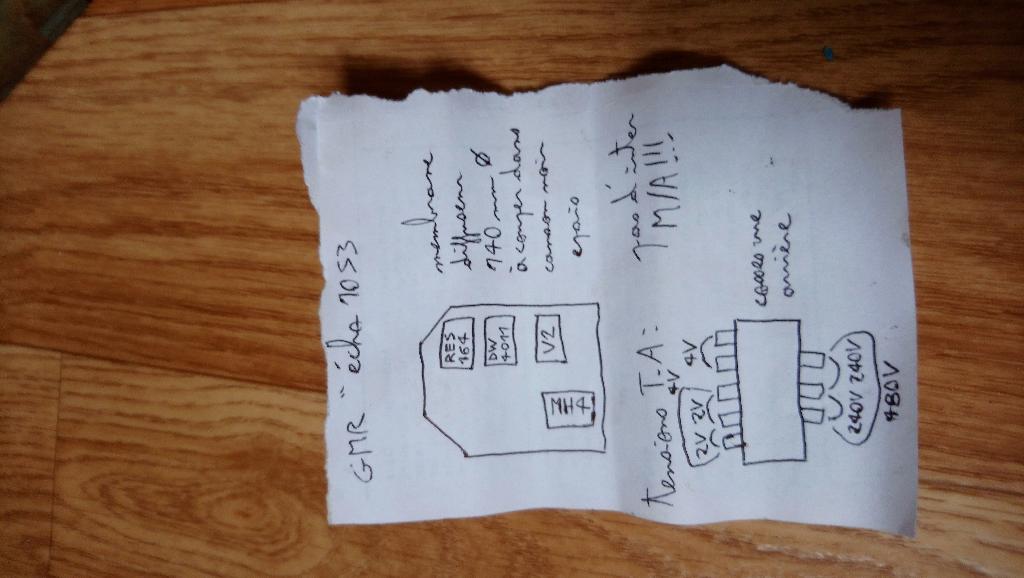 GMR "écha 1053
membrane
diffuseur
140 mm Ø
à couper dans
canson noir
épais
RES
164
DW
4011
V2
T-A
tensions T.A:
pas d'inter
M/A!!!
4V
2V 2V 4V
carcasse
arrière
240V 240V
480V